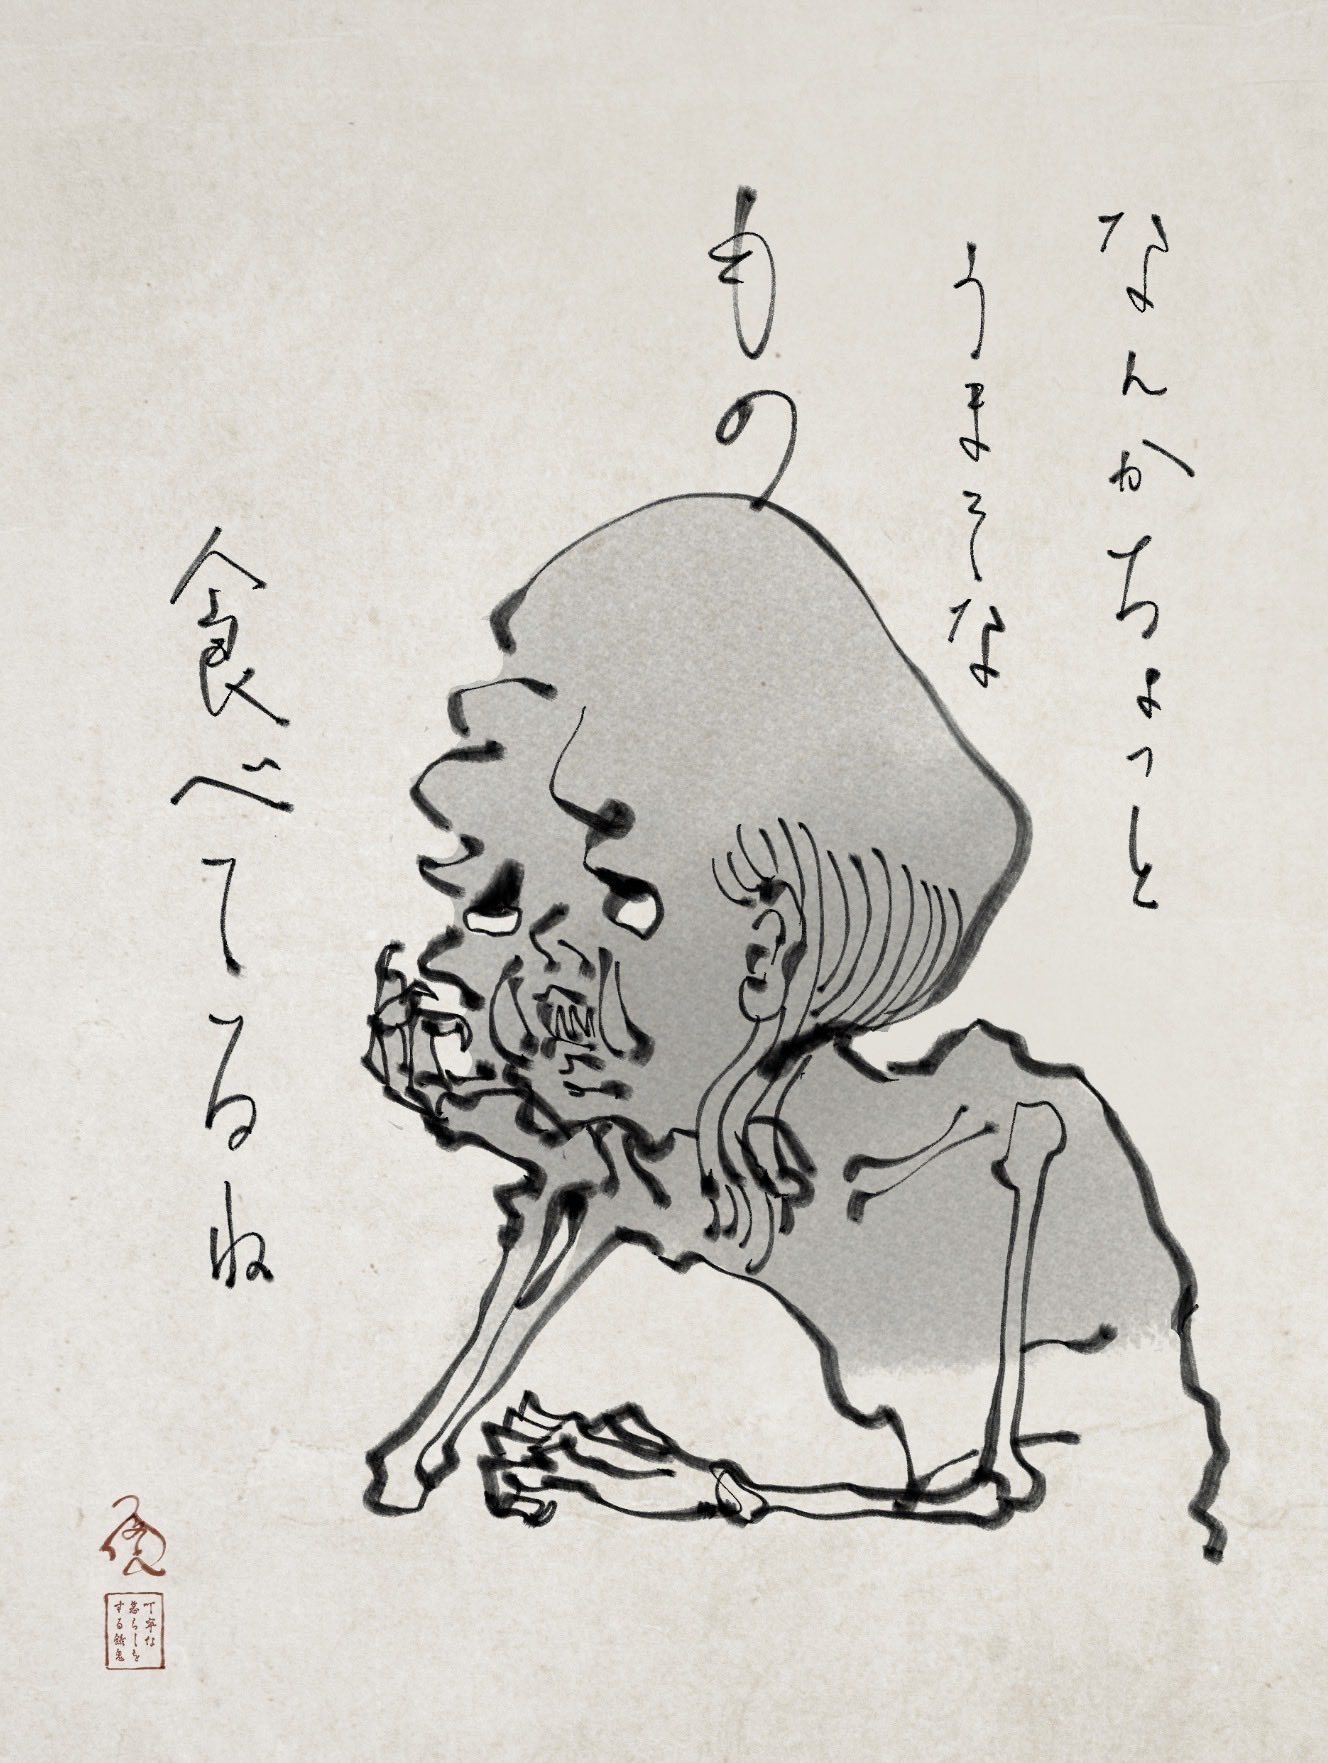 なんかちょっと
うまそな
もの
食べてるね
丁寧な
暮らしを
する餓鬼